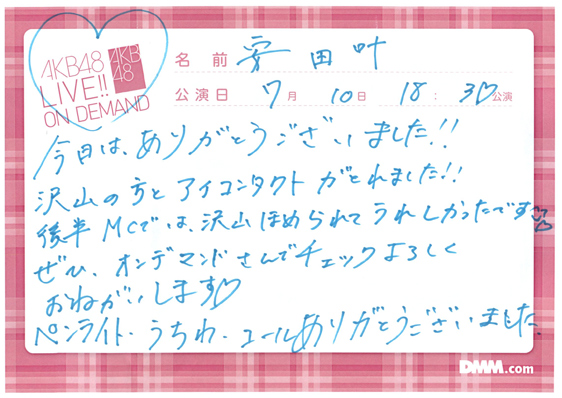 AKB48
LIVE!!
ON DEMAND
AKB
48
名前 安田叶
公演日 7月 10日 18:30公演
今日は、ありがとうございました!!
沢山の方とアイコンタクトがとれました!!
後半MCでは、沢山ほめられてうれしかったです♡♡
ぜひ、オンデマンドさんでチェックよろしく
おねがいします♡
ペンライト・うちわ・コールありがとうございました
DMM.com